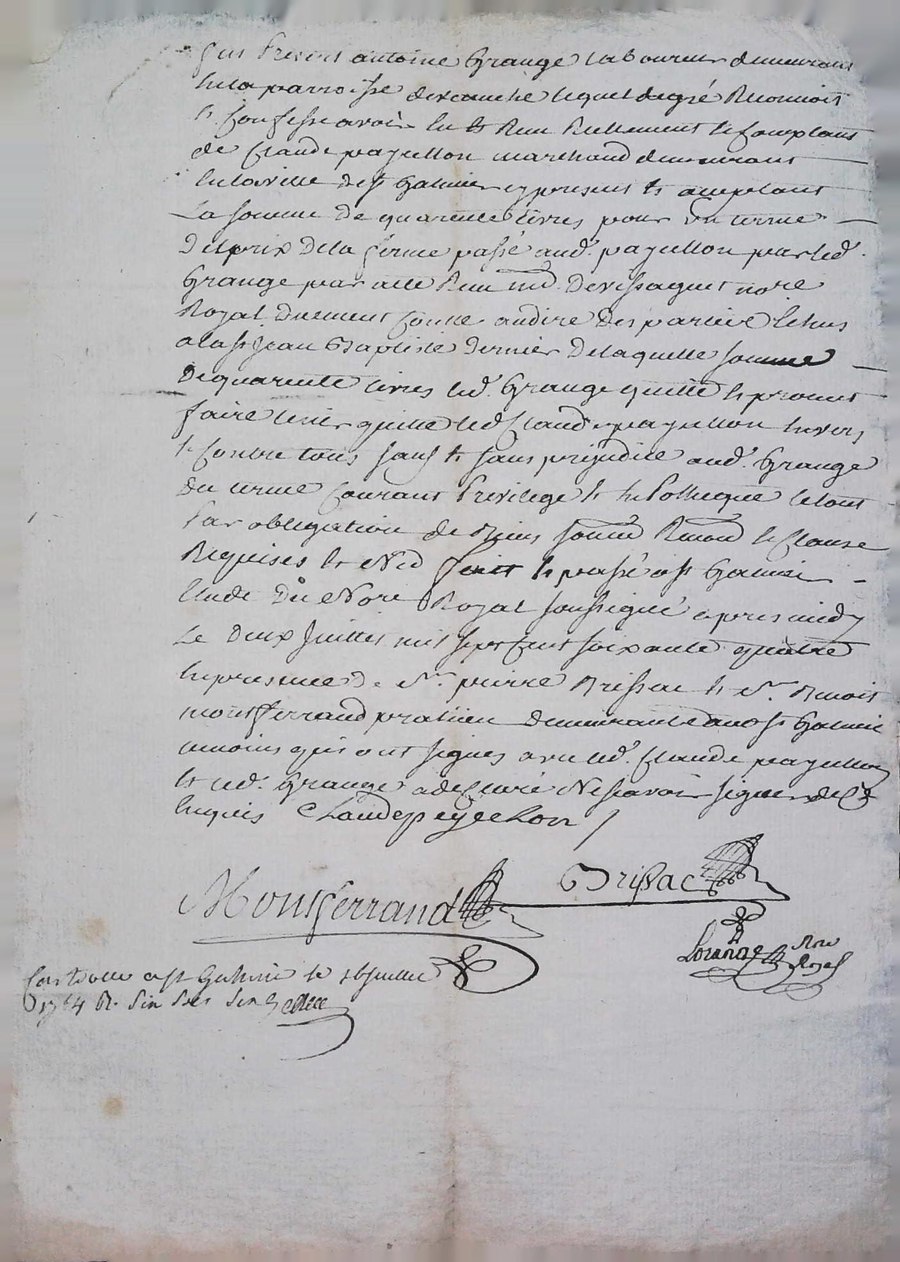 Fut Present antoine Grange laboureur demeurant
En la parroisse de lequel de gré Reconnoit
Et Confesse avoir Eu et Reçeu Reellement et Comptant
de Claude payellon marchand demeurant
En la ville de st Galmier cy present et acceptant
La somme de quarente Livres pour un terme
Du prix de la ferme passé aud. payellon par led.
Grange par acte Reçeu me Devissaguet no.re
Royal duement Conné au dire des parties Echus
a la st Jean Baptiste dernier de laquelle somme
De quarente Livres led. Grange quitte et promet
faire tenir quitte led Claude payellon Envers
Et Contre tous sauf et sans prejudice aud. Grange
du terme Courant Privilege et hypotheque le tout
Par obligation de Biens Renond et Clause
Requises et Ned fait et passé a st Galmier
Etude du Nore Royal soussigné apres midy
Le deux Juillet mil sept Cent soixante quatre
En presence de Sr. pierre Brissac et Sr. Benoit
montferrand praticien demeurants aud st Galmier
temoins qui ont signés avec led. Claude payellon
Et led. Grange a declaré Ne savoir signer de Ce
Enquis Claude peyeellon
Montferrand
Brissac
Lorange Nore Royal
Controllé a st Galmier le 16 juillet
1764 R. Six sols Six d